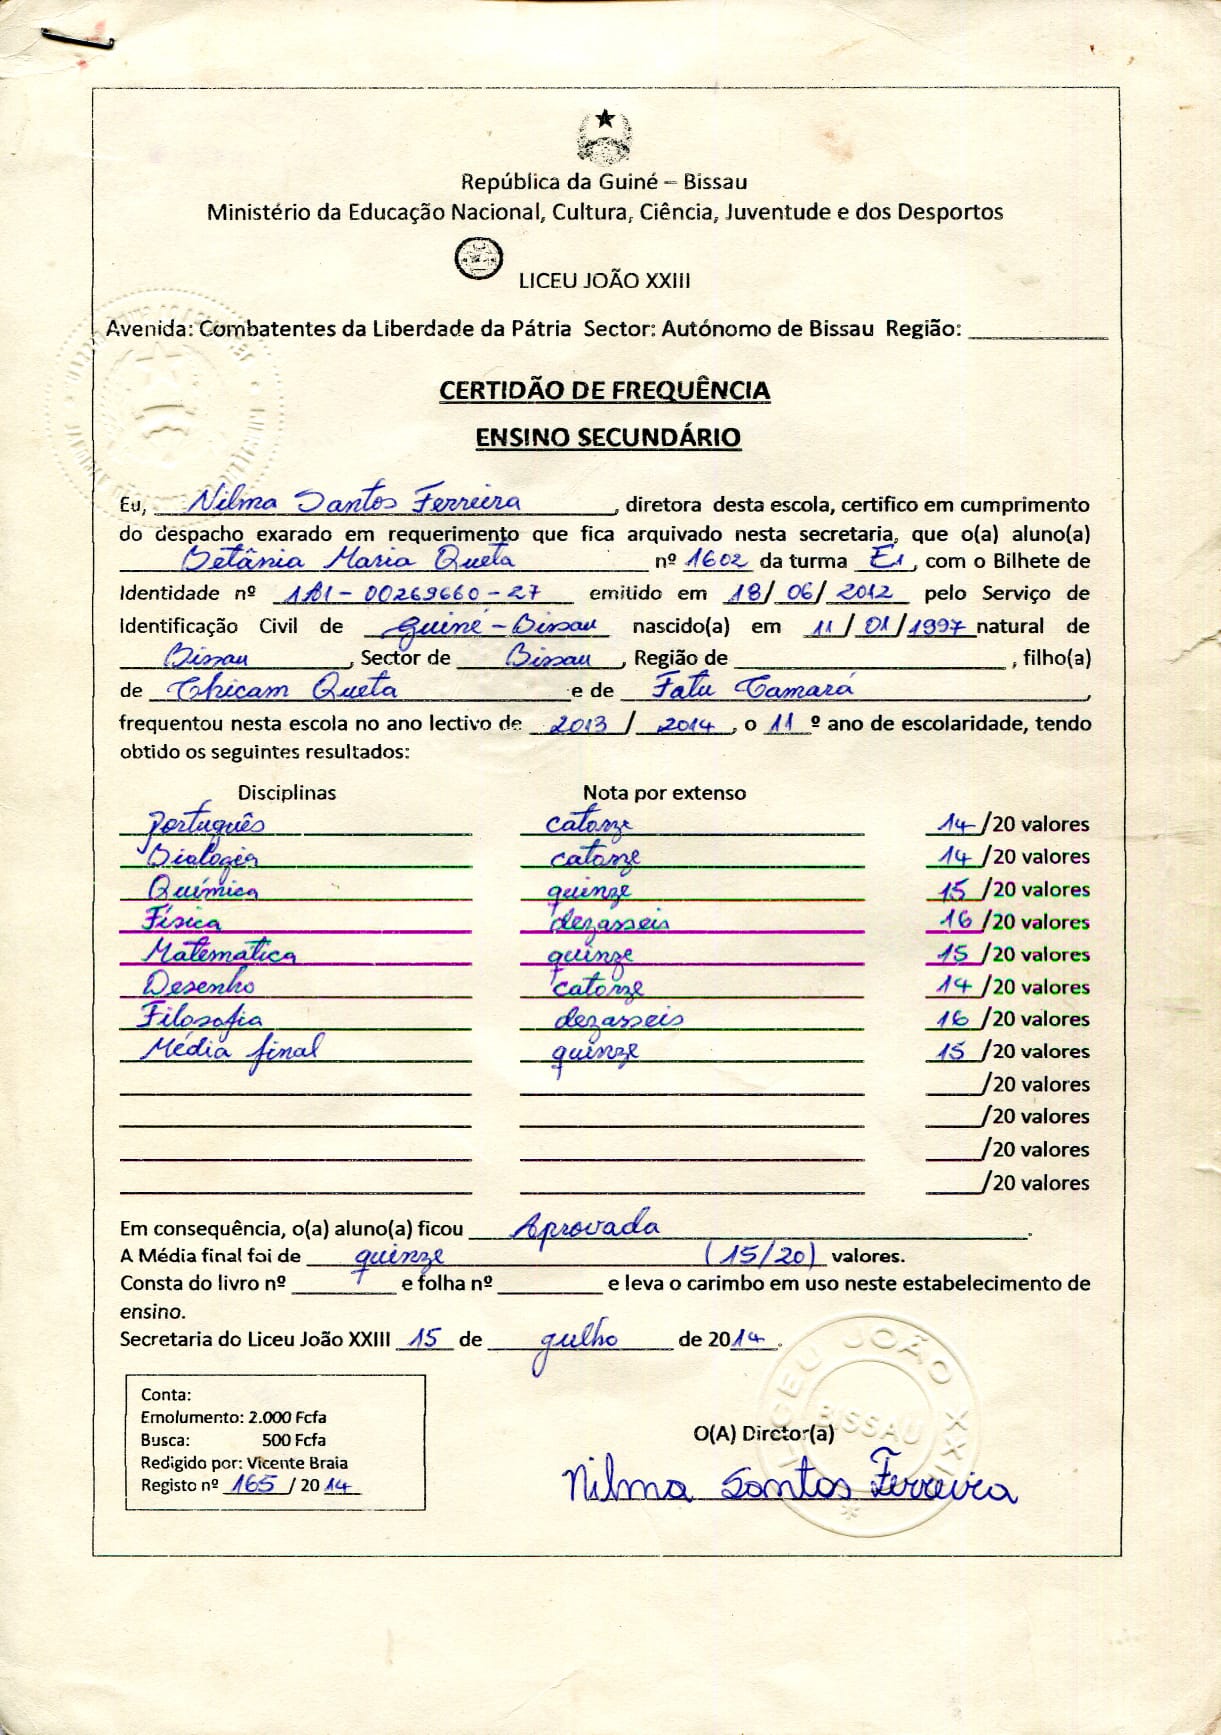 República da Guiné – Bissau
Ministério da Educação Nacional, Cultura, Ciência, Juventude e dos Desportos
LICEU JOÃO XXIII
Avenida: Combatentes da Liberdade da Pátria Sector: Autónomo de Bissau Região:
CERTIDÃO DE FREQUÊNCIA
ENSINO SECUNDÁRIO
Eu, Nilma Santos Ferreira, diretora desta escola, certifico em cumprimento
do despacho exarado em requerimento que fica arquivado nesta secretaria, que o(a) aluno(a)
Betânia Maria Queta nº 1602 da turma E1, com o Bilhete de
Identidade nº 1B1-00269660-27 emitido em 18/06/2012 pelo Serviço de
Identificação Civil de Guiné-Bissau nascido(a) em 11/01/1997 natural de
Bissau, Sector de Bissau, Região de , filho(a)
de Chicam Queta e de Fatu Camará,
frequentou nesta escola no ano lectivo de 2013 / 2014, o 11º ano de escolaridade, tendo
obtido os seguintes resultados:
Disciplinas Nota por extenso
Português catorze 14/20 valores
Biologia catorze 14/20 valores
Química quinze 15/20 valores
Física dezasseis 16/20 valores
Matemática quinze 15/20 valores
Desenho catorze 14/20 valores
Filosofia dezasseis 16/20 valores
Média final quinze 15/20 valores
/20 valores
/20 valores
/20 valores
/20 valores
Em consequência, o(a) aluno(a) ficou Aprovada.
A Média final foi de quinze (15/20) valores.
Consta do livro nº e folha nº e leva o carimbo em uso neste estabelecimento de
ensino.
Secretaria do Liceu João XXIII 15 de gulho de 2014.
Conta:
Emolumento: 2.000 Fcfa
Busca: 500 Fcfa
Redigido por: Vicente Braia
Registo nº 165 / 2014
O(A) Diretor(a)
Nilma Santos Ferreira
LICEU JOÃO XXIII
BISSAU